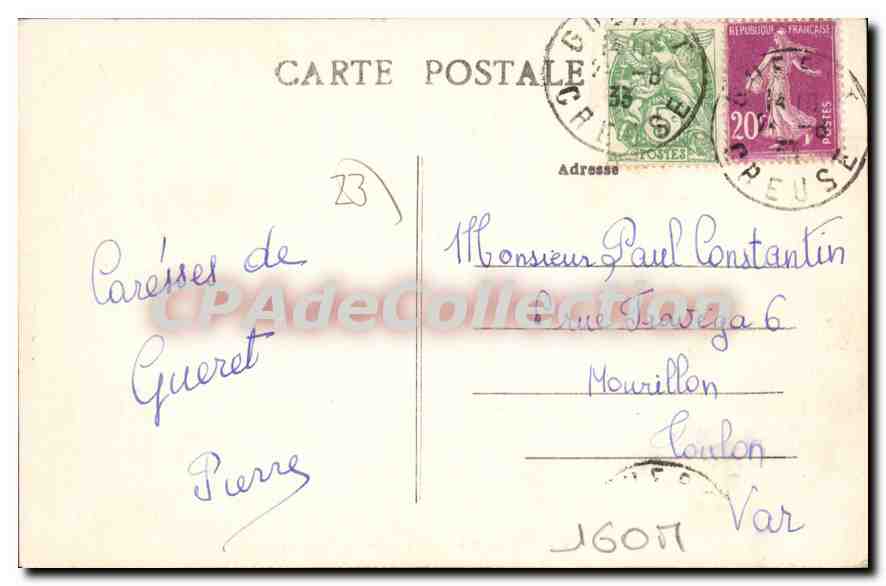 CARTE POSTALE
GUERET
-8
35
CREUSE
POSTES
REPUBLIQUE FRANÇAISE
20c
POSTES
GUERET
CREUSE
Adresse
23
Carésses de
Gueret
Pierre
Monsieur Paul Constantin
rue Travéga 6
Mourillon
Toulon
Var
CPAdeCollection
160M